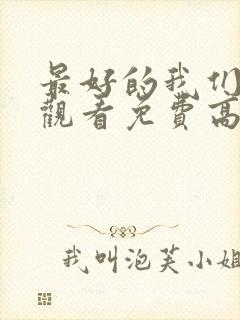 最好的我们
觀看免費高
我叫泡芙小姐